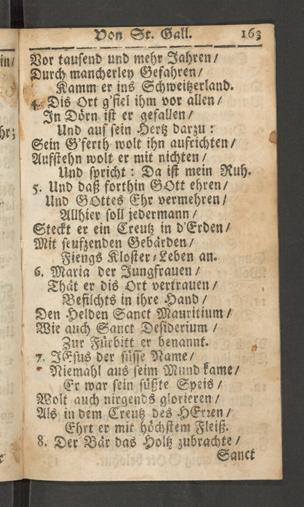 Von St. Gall. 163
Vor tausend und mehr Jahren /
Durch mancherley Gefahren /
Kamm er ins Schweitzerland.
4. Dis Ort g'fiel ihm vor allen /
In Dörn ist er gefallen /
Und auf sein Hertz darzu:
Sein G'ferth wolt ihn aufrichten /
Aufstehn wolt er mit nichten /
Und spricht: Da ist mein Ruh.
5. Und daß forthin GOtt ehren /
Und GOttes Ehr vermehren /
Allhier soll jedermann /
Steckt er ein Creutz in d'Erden /
Mit seufzenden Gebärden /
Fiengs Kloster-Leben an.
6. Maria der Jungfrauen /
Thät er dis Ort vertrauen /
Befilchts in ihre Hand /
Den Helden Sanct Mauritium /
Wie auch Sanct Desiderium /
Zur Fürbitt er benannt.
7. JEsus der süsse Name /
Niemahl aus seim Mund kame /
Er war sein süßte Speis /
Wolt auch nirgends glorieren /
Als in dem Creutz des HErren /
Ehrt er mit höchstem Fleiß.
8. Der Bär das Holtz zubrachte /
Sanct